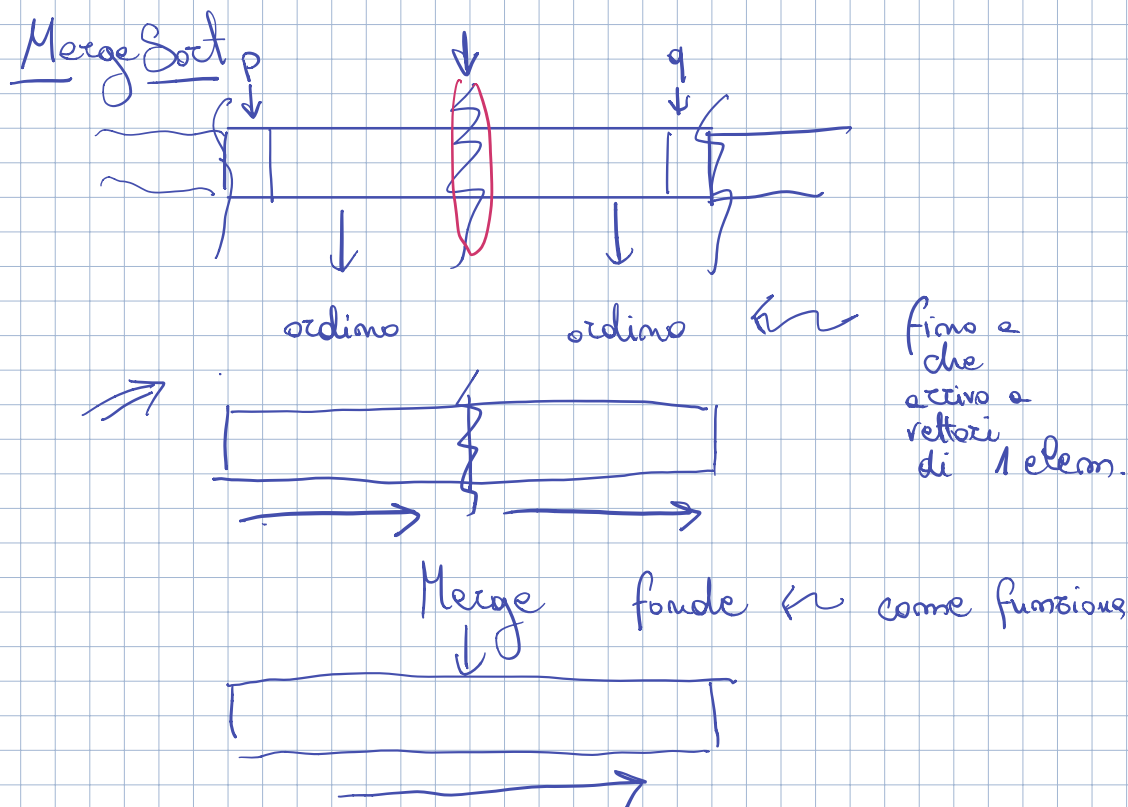 MergeSort
p
q
ordino
ordino
fino a
che
arrivo a
vettori
di 1 elem.
Merge fonde come funziona